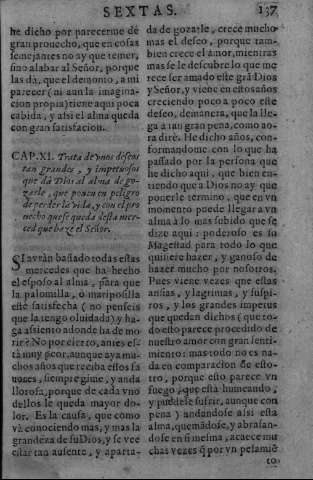 SEXTAS.
137
he dicho por parecerme de
gran prouecho, que en cosas
semejantes no ay que temer,
sino alabar al Señor, porque
las dà, que el demonio, a mi
parecer (ni aun la imagina-
cion propia) tiene aqui poca
cabida, y assi el alma queda
con gran satisfacion.
CAP. XI. Trata de vnos deseos
tan grandes, y impetuosos
que dà Dios al alma de go-
zarle, que ponen en peligro
de perder la vida, y con el pro
uecho que se queda desta mer-
ced que haze el Señor.
SI avràn bastado todas estas
mercedes que ha hecho
el esposo al alma, para que
la palomilla, ò mariposilla
estè satisfecha (no penseis
que la tengo oluidada) y ha-
ga assiento adonde ha de mo
rir? No por cierto, antes es-
tà muy peor, aunque aya mu-
chos años que reciba estos fa
uores, siempre gime, y anda
llorosa, porque de cada vno
dellos le queda mayor do-
lor. Es la causa, que como
và conociendo mas, y mas la
grandeza de su Dios, y se vee
estar tan ausente, y aparta-
da de gozarle, crece mucho
mas el deseo, porque tam-
bien crece el amor, mientras
mas se le descubre lo que me
rece ser amado este grã Dios
y Señor, y viene en estos años
creciendo poco a poco este
deseo, demanera, que la lle-
ga à tan gran pena, como ao-
ra dirè. He dicho años, con-
formandome con lo que ha
passado por la persona que
he dicho aqui, que bien en-
tiendo que a Dios no ay que
ponerle termino, que en vn
momento puede llegar a vn
alma à lo mas subido que se
dize aqui: poderoso es su
Magestad para todo lo que
quisiere hazer, y ganoso de
hazer mucho por nosotros.
Pues viene vezes que estas
ansias, y lagrimas, y suspi-
ros, y los grandes impetus
que quedan dichos (que to-
do esto parece procedido de
nuestro amor con gran senti-
miento: mas todo no es na-
da en comparacion de esto-
tro, porque esto parece vn
fuego, que està humeando,
y puedese sufrir, aunque con
pena) andandose assi esta
alma, quemãdose, y abrasan-
dose en si mesma, acaece mu
chas vezes q̃ por vn pensamiẽ
to